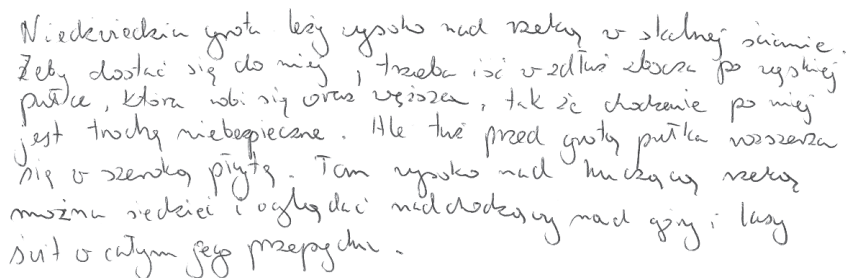 Niedźwiedzia grota leży wysoko nad rzeką w skalnej ścianie.
Żeby dostać się do niej, trzeba iść wzdłuż zbocza po wąskiej
pułce, która robi się coraz węższa, tak że chodzenie po niej
jest trochę niebezpieczne. Ale tuż przed grotą pułka rozszerza
się w szeroką płytę. Tam wysoko nad huczącą rzeką
można siedzieć i oglądać nadchodzący nad góry i lasy
świt w całym jego przepychu.